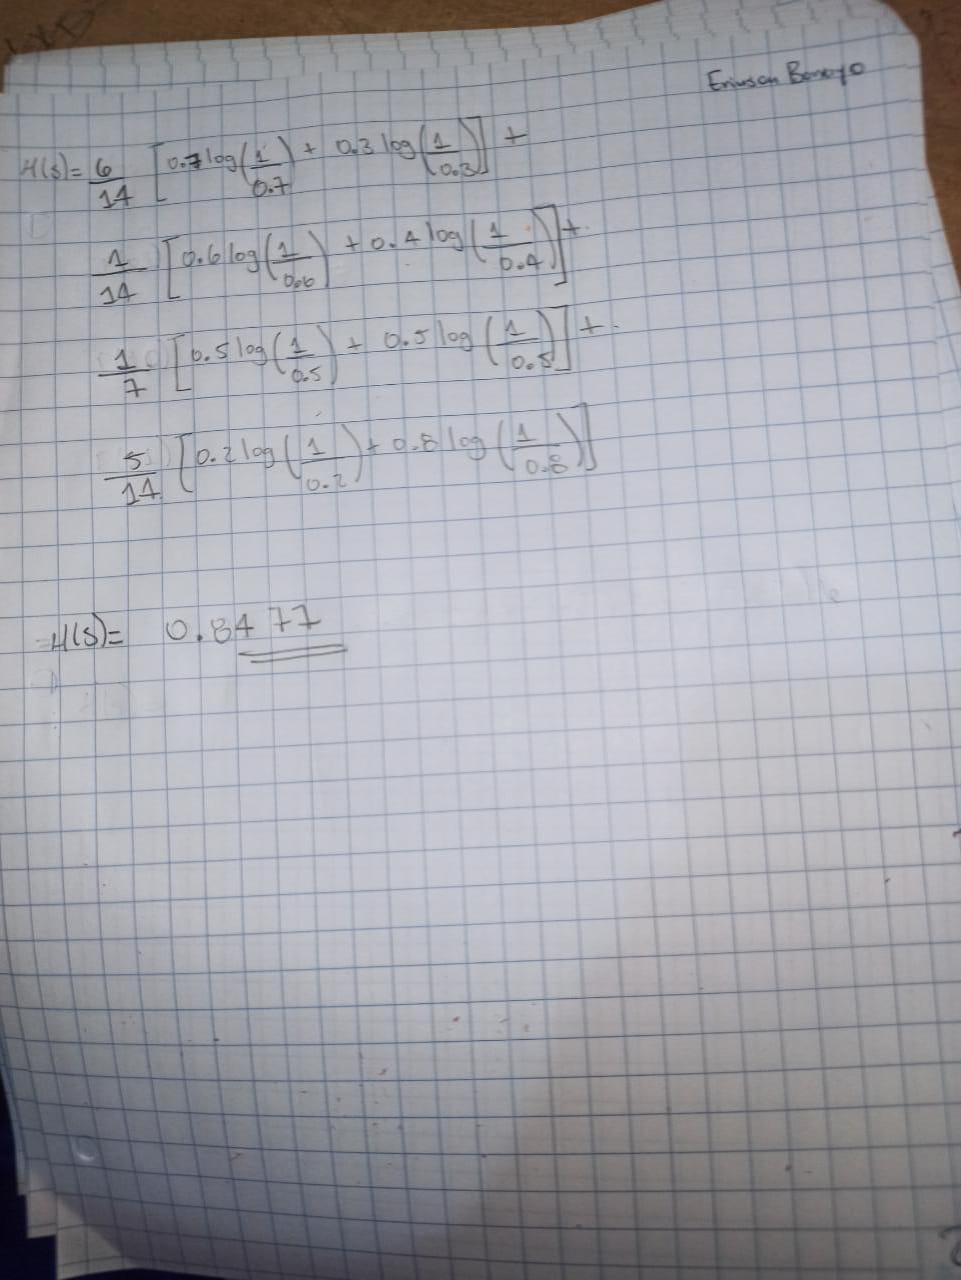 H(s)= 6/14 [0.7 log(1/0.7) + 0.3 log(1/0.3)] +
1/14 [0.6 log(1/0.6) + 0.4 log(1/0.4)] +
1/7 [0.5 log(1/0.5) + 0.5 log(1/0.5)] +
5/14 [0.2 log(1/0.2) + 0.8 log(1/0.8)]
H(s)= 0.8477